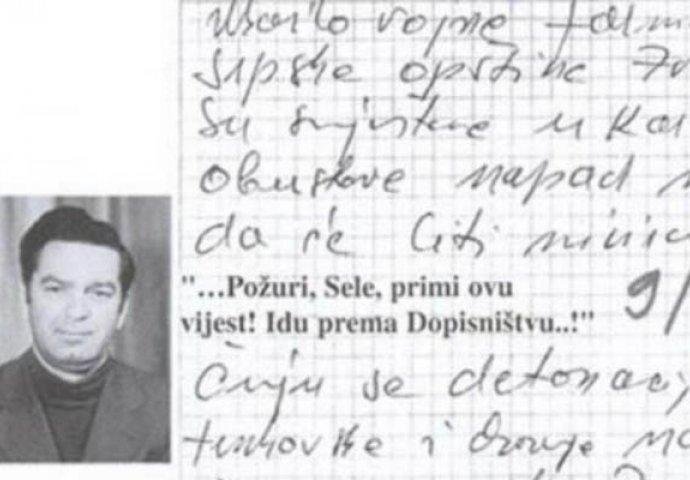 vojne form
srpske opštine Zv
su smještene u Kar
obustave napad
da će biti minir
"...Požuri, Sele, primi ovu
vijest! Idu prema Dopisništvu..!"
9/
Čuju se detonacij
tenkovske i druge